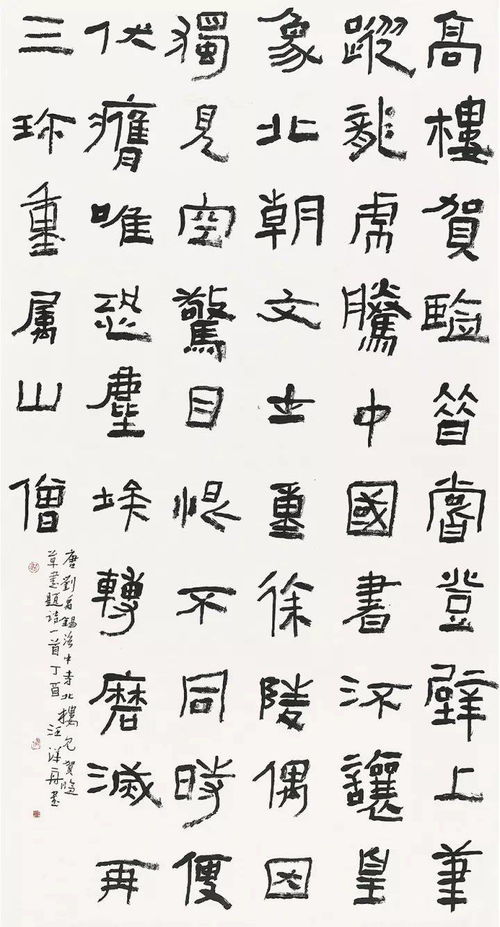 高樓賀監昔嘗登壁上筆
蹤龍虎騰中國書流讓皇
象北朝文士重徐陵偶因
獨見空驚目恨不同時便
伏膺唯恐塵埃轉磨滅再
三珍重屬山僧
唐劉禹錫洛中寺北樓見賀監
草書題詩一首丁酉 汪洋舟書